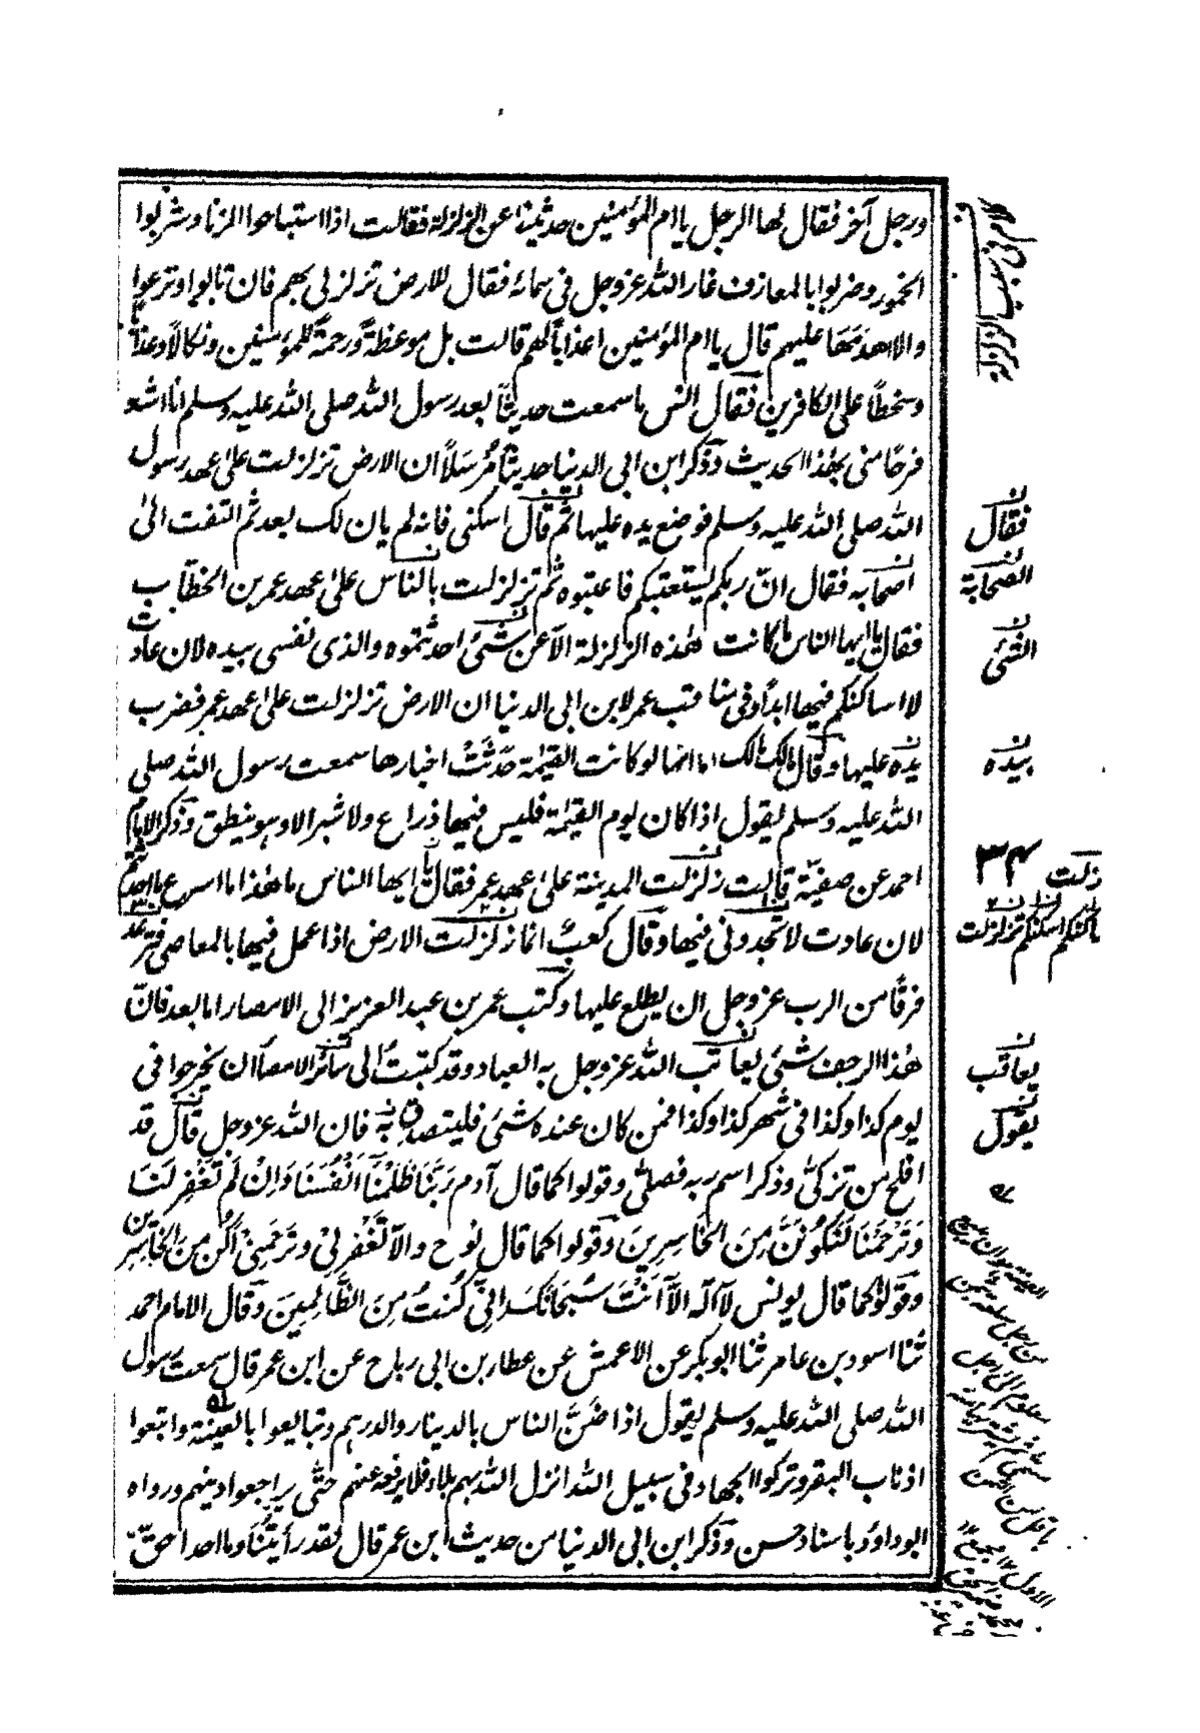 ورجل آخر فقال لها الرجل يا ام المؤمنين حدثينا عن الزلزلة فقالت اذا استباحوا الزنا وشربوا
الخمور وضربوا بالمعازف غار الله عزوجل فى سمائه فقال للارض تزلزلى بهم فان تابوا وترعوا
والا هدمها عليهم قال يا ام المؤمنين اعذاباً لهم قالت بل موعظةً ورحمةً للمؤمنين ونكالاً وعذاباً
وسخطاً على الكافرين فقال انس ما سمعت حديثاً بعد رسول الله صلى الله عليه وسلم انا اشد
فرحًا منى بهذا الحديث وذكر ابن ابى الدنيا حديثاً مُرسَلاً ان الارض تزلزلت على عهد رسول
الله صلى الله عليه وسلم فوضع يده عليها ثم قال اسكنى فانه لم يان لك بعد ثم التفت الىٰ
اصحابه فقال انّ ربكم ليستعتبكم فاعتبوه ثم تزلزلت بالناس علىٰ عهد عمر بن الخطّاب
فقال يا ايها الناس ما كانت هٰذه الزلزلة الا عن شئ احدثتموه والذى نفسى بيده لان عادت
لا اساكنكم فيها ابداً وفى مناقب عمر لابن ابى الدنيا ان الارض تزلزلت علىٰ عهد عمر فضرب
يده عليها وقال مالك مالك اما انها لو كانت القيٰمة حَدَّثَتْ اخبارها سمعت رسول الله صلى
الله عليه وسلم يقول اذا كان يوم القيٰمة فليس فيها ذراع ولا شبر الا وهو ينطق وذكر الامام
احمد عن صفيّة قالت زلزلت المدينة علىٰ عهد عمر فقال يا ايها الناس ما هٰذا ما اسرع ما احدثتم
لان عادت لا تجدونى فيها وقال كعبٌ انما زلزلت الارض اذا عمل فيها بالمعاصى فترعد
فرقًا من الرب عزوجل ان يطلع عليها وكتب عمر بن عبد العزيز الى الامصار اما بعد فانّ
هٰذا الرجف شئ يعاتب الله عزوجل به العباد وقد كتبتُ الى سائر الامصار ان يخرجوا فى
يوم كذا وكذا فى شهر كذا وكذا فمن كان عنده شئ فليتصدق به فان الله عزوجل قال قد
افلح من تزكّى وذكر اسم ربه فصلّى وقولوا كما قال آدم رَبَّنَا ظَلَمْنَا اَنْفُسَنَا وَاِنْ لَّمْ تَغْفِرْ لَنَا
وَتَرْحَمْنَا لَنَكُوْنَنَّ مِنَ الْخَاسِرِينَ وقولوا كما قال نوح والاّ تَغْفِرْ لِىْ وَتَرْحَمْنِىْ اَكُنْ مِنَ الْخَاسِرِين
وقولوا كما قال يونس لآ اله الاّ اَنْتَ سُبْحَانَكَ اِنِّى كُنْتُ مِنَ الظّالِمِينَ وقال الامام احمد
ثنا اسود بن عامر ثنا ابو بكر عن الاعمش عن عطاء بن ابى رباح عن ابن عمر قال سمعت رسول
الله صلى الله عليه وسلم يقول اذا ضَنَّ الناس بالدينار والدرهم وتبايعوا بالعينة واتبعوا
اذناب البقر وتركوا الجهاد فى سبيل الله انزل الله بهم بلاء فلا يرفعه عنهم حتّى يراجعوا دينهم ورواه
ابوداؤد باسناد حسن وذكر ابن ابى الدنيا من حديث ابن عمر قال لقد رأيتُنا وما احد احقّ
فقال
الصحابة
الشئ
بيده
٣٤
زلت
يعاقب
يقول